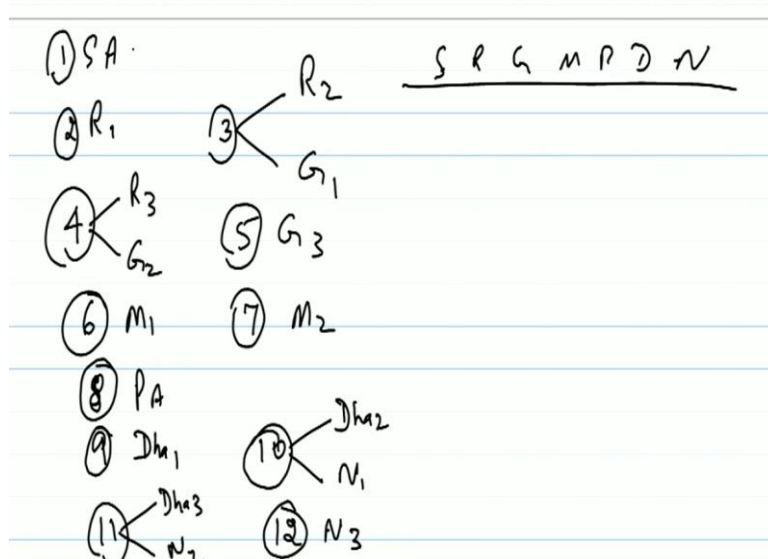 ① SA.
S R G M P D N
② R1
③ R2
G1
④ R3
G2
⑤ G3
⑥ M1
⑦ M2
⑧ PA
⑨ Dha1
⑩ Dha2
N1
⑪ Dha3
N2
⑫ N3